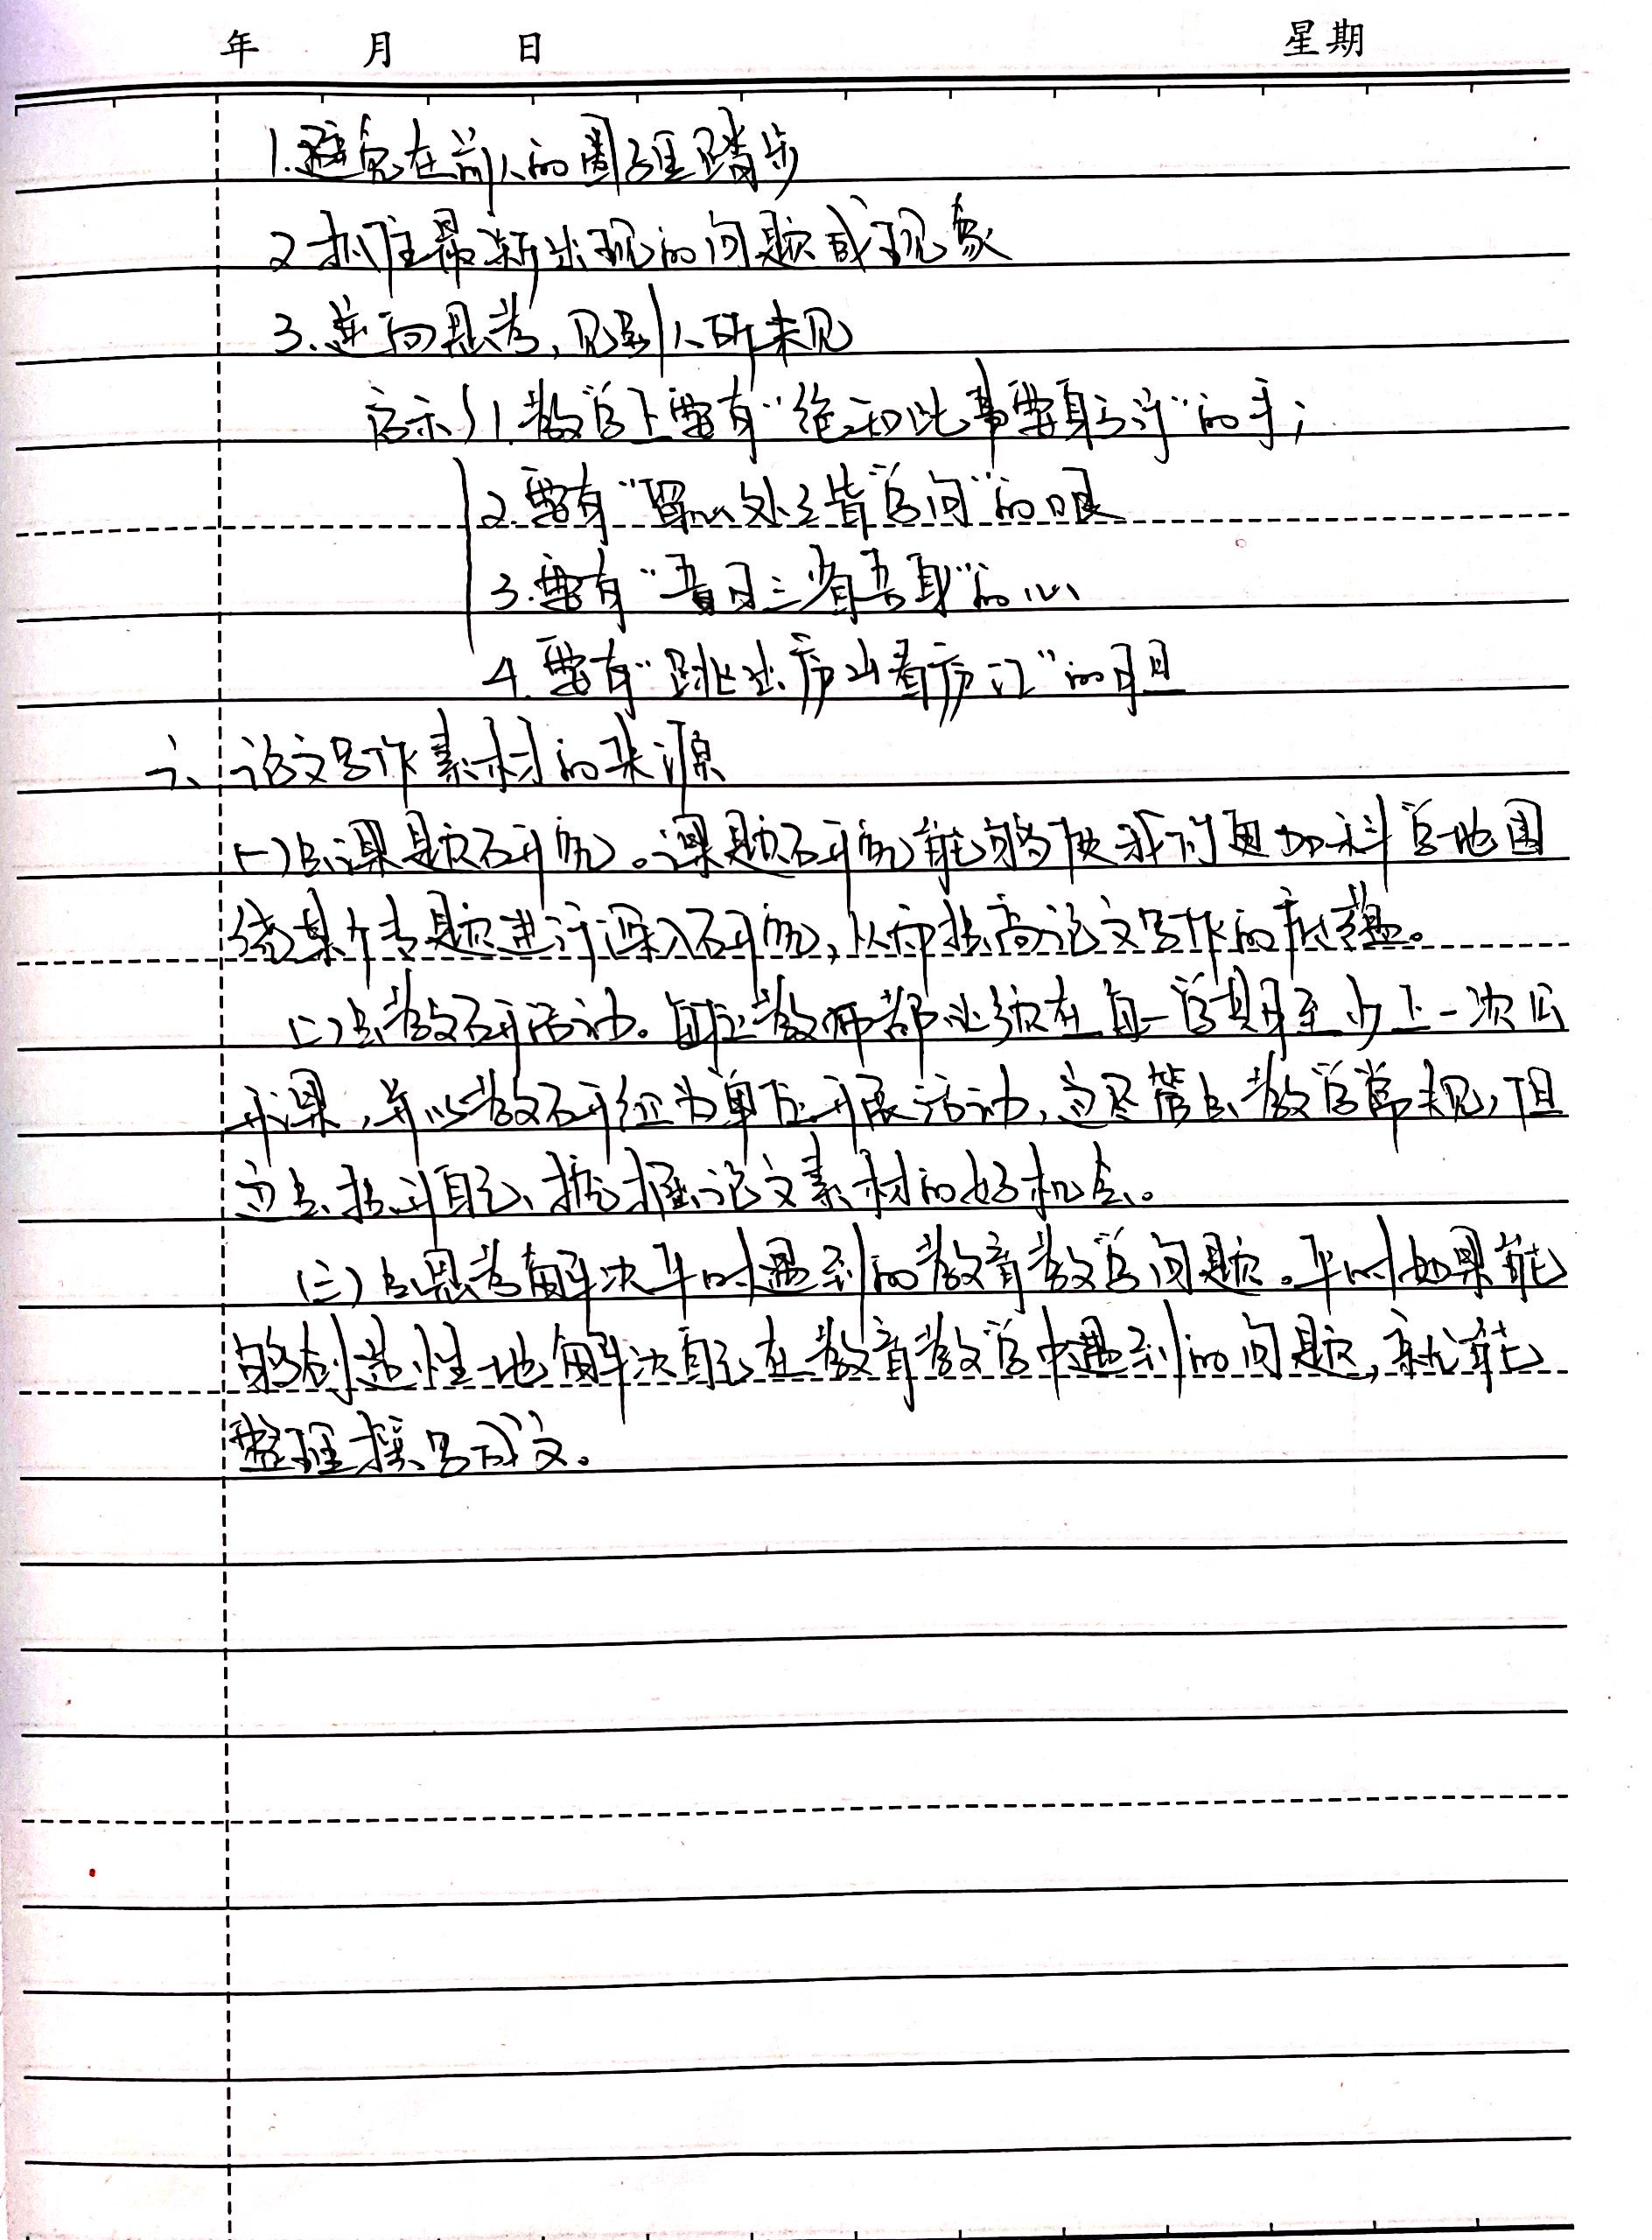 年 月 日 星期
1.避免在前人的圈子里踏步
2.抓住最新出现的问题或现象
3.逆向思考,见别人所未见
启示 1.教学上要有“绝知此事要躬行”的手;
2.要有“留心处处皆学问”的眼
3.要有“吾日三省吾身”的心
4.要有“跳出庐山看庐山”的胆
六、论文写作素材的来源
(一)是课题研究。课题研究能够使我们更加科学地围
绕某个专题进行深入研究,从而提高论文写作的底蕴。
(二)是教研活动。每位教师都必须在每一学期至少上一次公
开课,并以教研组为单位开展活动,这尽管是教学常规,但
这是提升自己、挖掘论文素材的好机会。
(三)是思考解决平时遇到的教育教学问题。平时如果能
够创造性地解决自己在教育教学中遇到的问题,就能
整理撰写成文。